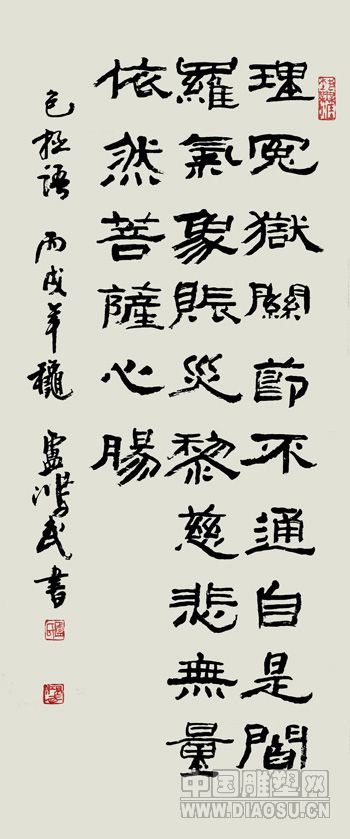 理冤獄關節不通自是閻
羅氣象賑災黎慈悲無量
依然菩薩心腸
包拯語 丙戌年穐 盧鴻民書
中国雕塑网
WWW.DIAOSU.CN